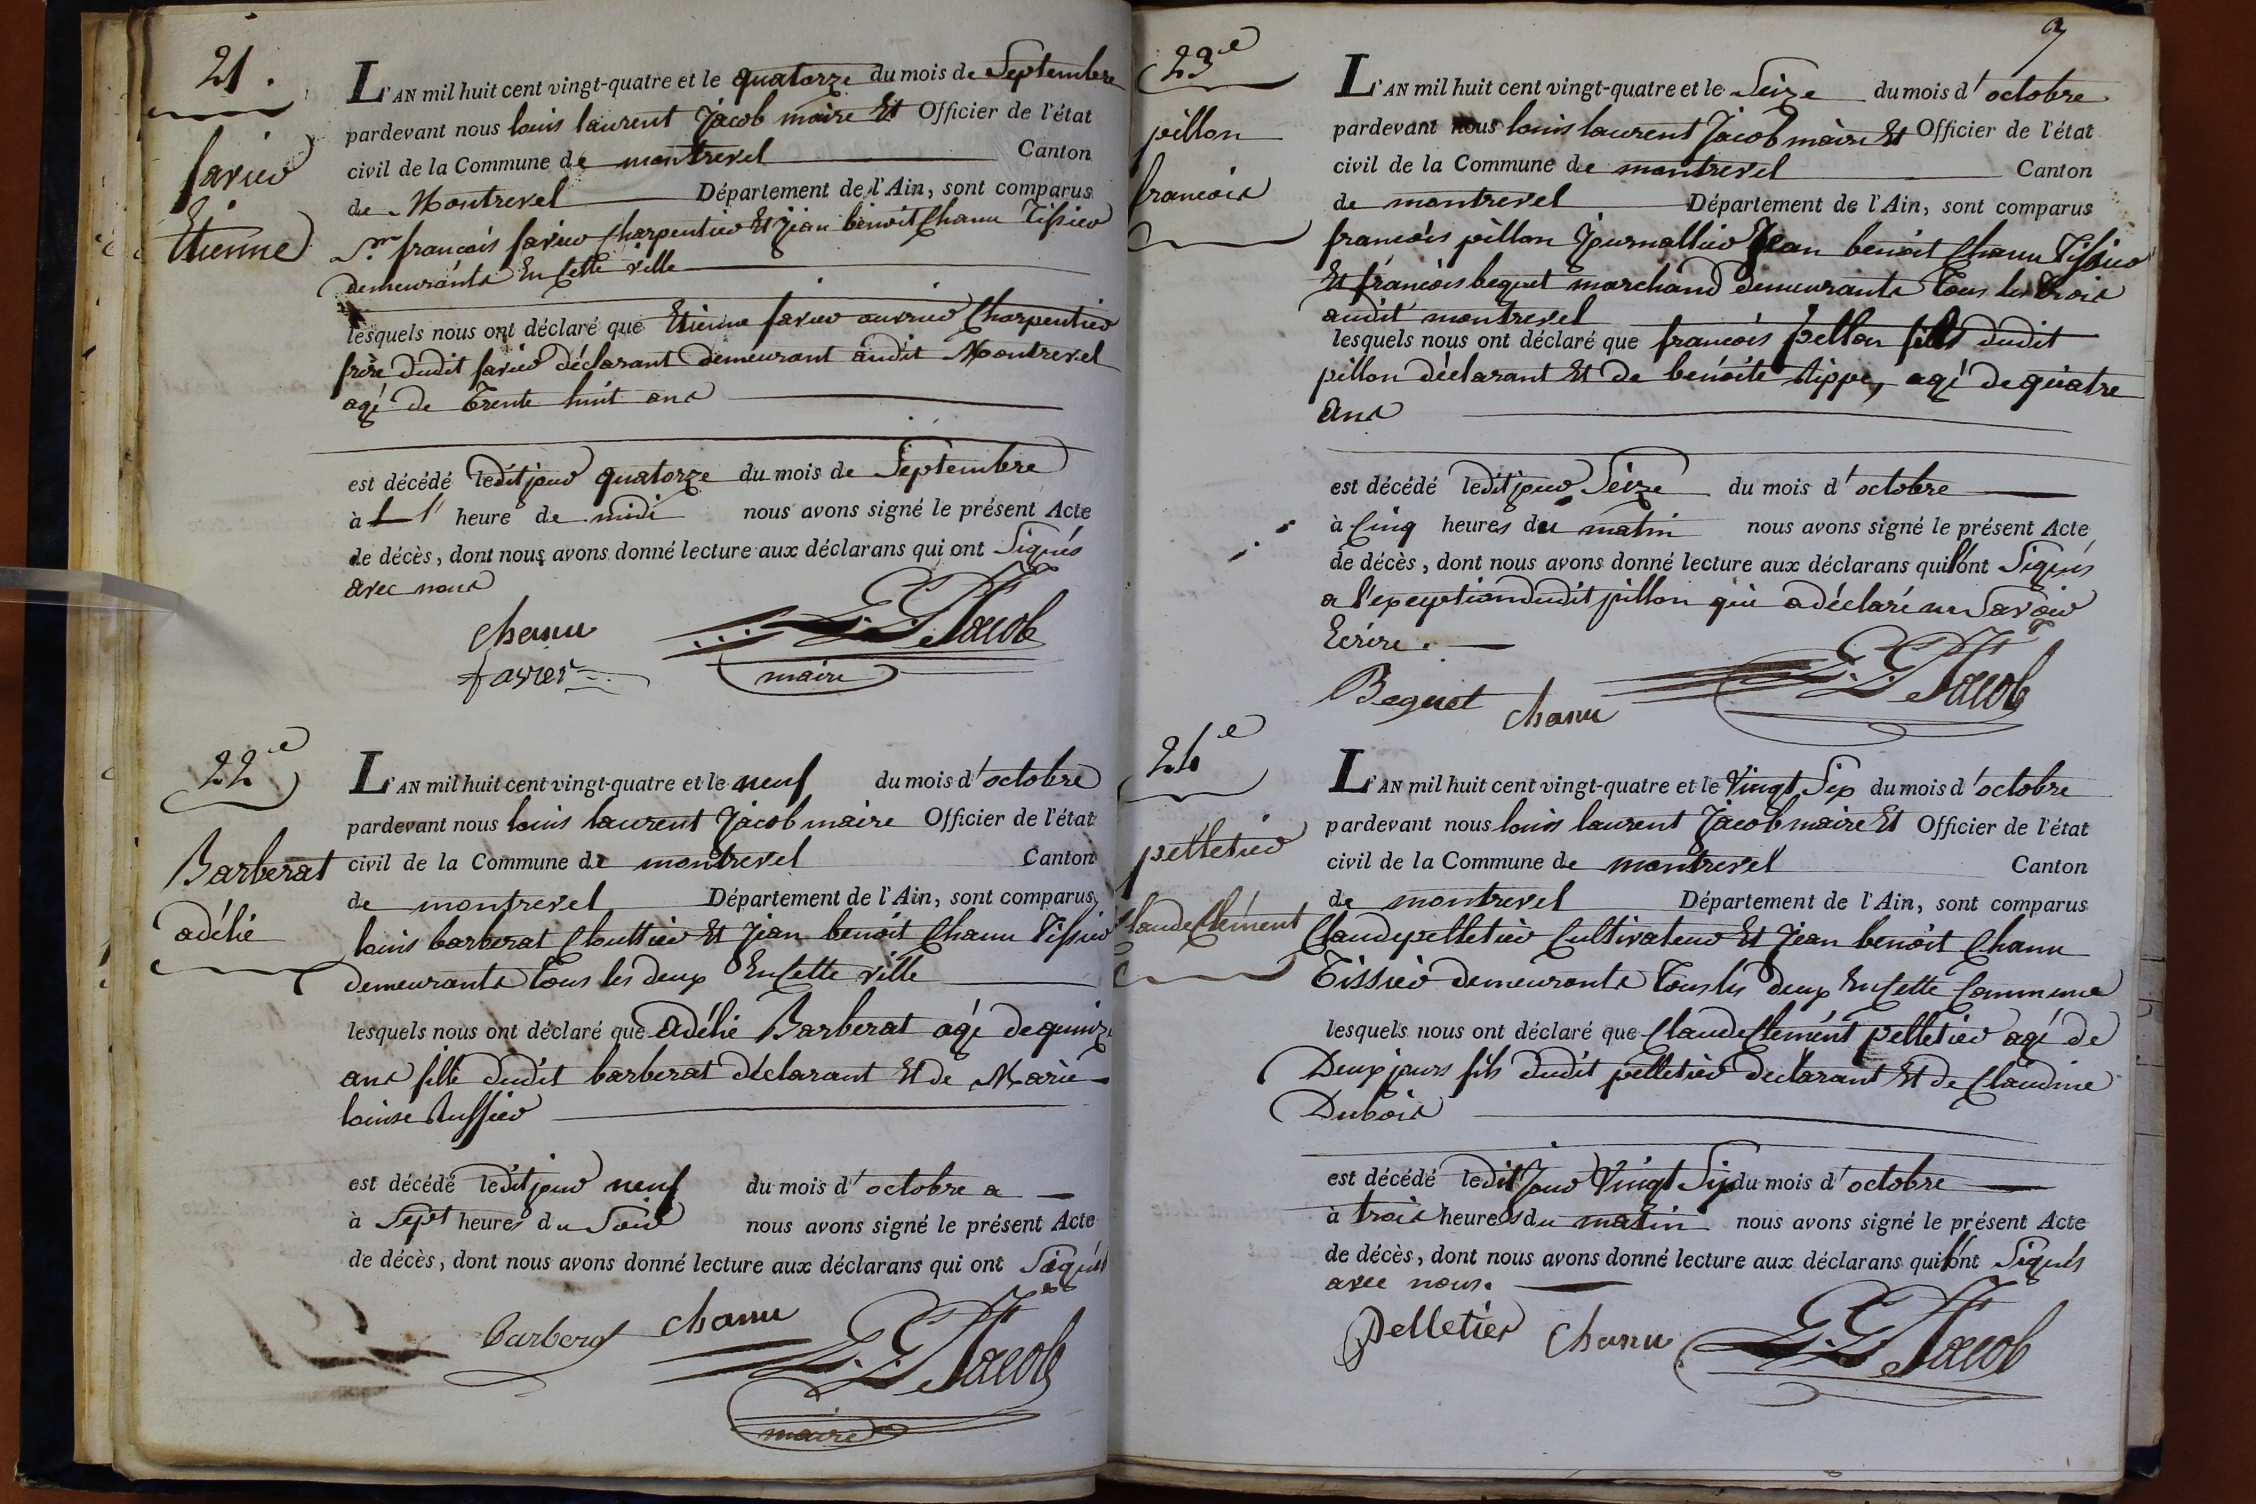 21.
favier
Etienne
L'AN mil huit cent vingt-quatre et le quatorze du mois de Septembre
pardevant nous louis laurent Jacob maire Et Officier de l'état
civil de la Commune de montrevel Canton
de Montrevel Département de l'Ain, sont comparus
Sr. francois favier Charpentier Et jean benoit Chanu Tissier
demeurants En Cette ville
lesquels nous ont déclaré que Etienne favier ouvrier Charpentier
frère dudit favier déclarant demeurant audit Montrevel
agé de Trente huit ans
est décédé ledit jour quatorze du mois de Septembre
à l' heure de midi nous avons signé le présent Acte
de décès, dont nous avons donné lecture aux déclarans qui ont Signés
avec nous
Chanu L. L. Jacob
favier maire
22e
Barberat
adélie
L'AN mil huit cent vingt-quatre et le neuf du mois d'octobre
pardevant nous louis laurent Jacob maire Officier de l'état
civil de la Commune de montrevel Canton
de montrevel Département de l'Ain, sont comparus
louis barberat Clouttier Et Jean benoit Chanu Tissier
demeurants tous les deux En Cette ville
lesquels nous ont déclaré que adélie Barberat agé de quinze
ans fille dudit barberat déclarant Et de Marie
louise
est décédé ledit jour neuf du mois d'octobre a
à Sept heures du Soir nous avons signé le présent Acte
de décès, dont nous avons donné lecture aux déclarans qui ont Signés
barberat Chanu L. L. Jacob
maire
9
23e
pillon
francois
L'AN mil huit cent vingt-quatre et le Seize du mois d'octobre
pardevant nous louis laurent Jacob maire Et Officier de l'état
civil de la Commune de montrevel Canton
de montrevel Département de l'Ain, sont comparus
francois pillon Journallier Jean benoit Chanu Tissier
Et francois bequet marchand demeurants tous les trois
audit montrevel
lesquels nous ont déclaré que francois pillon fils dudit
pillon déclarant Et de benoite agé de quatre
ans
est décédé ledit jour Seize du mois d'octobre
à Cinq heures du matin nous avons signé le présent Acte
de décès, dont nous avons donné lecture aux déclarans qui l'ont Signés
a l'exception dudit pillon qui a déclaré ne Savoir
Ecrire.
Bequet Chanu L. L. Jacob
24e
pelletier
Claude Clément
L'AN mil huit cent vingt-quatre et le Vingt Six du mois d'octobre
pardevant nous louis laurent Jacob maire Et Officier de l'état
civil de la Commune de montrevel Canton
de montrevel Département de l'Ain, sont comparus
Claude pelletier Cultivateur Et Jean benoit Chanu
Tissier demeurants tous les deux En Cette Commune
lesquels nous ont déclaré que Claude Clément pelletier agé de
Deux jours fils dudit pelletier declarant Et de Claudine
Dubois
est décédé ledit Jour Vingt Six du mois d'octobre
à trois heures du matin nous avons signé le présent Acte
de décès, dont nous avons donné lecture aux déclarans qui l'ont Signés
avec nous.
Pelletier Chanu L. L. Jacob